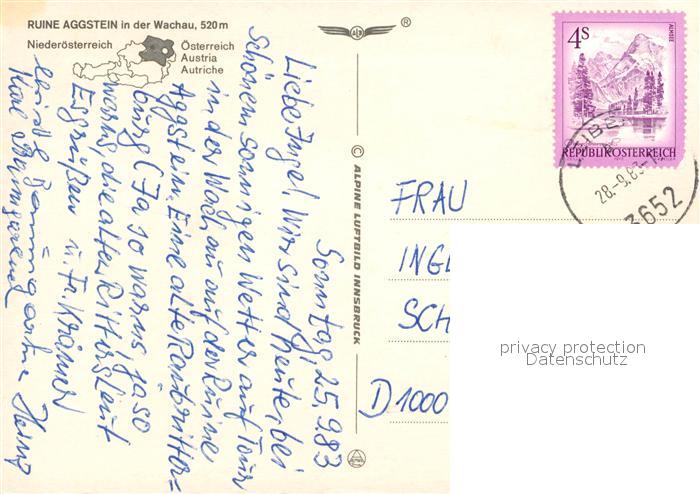 RUINE AGGSTEIN in der Wachau, 520 m
Niederösterreich
Österreich
Austria
Autriche
®
© ALPINE LUFTBILD INNSBRUCK
Sonntag, 25.9.83
Liebe Inge! Wir sind heute bei
schönem sonnigen Wetter auf Tour
in der Wachau auf der Ruine
Aggstein. Eine alte Raubritter=
burg (Ja so warns, ja so
warns, die alten Rittersleut
Es grüßen u. Fr. Krämer
Heinz
Karl
4S
ALMSEE
REPUBLIK ÖSTERREICH
28.-9.83-
3652
FRAU
INGE
SCH
D 1000
privacy protection
Datenschutz